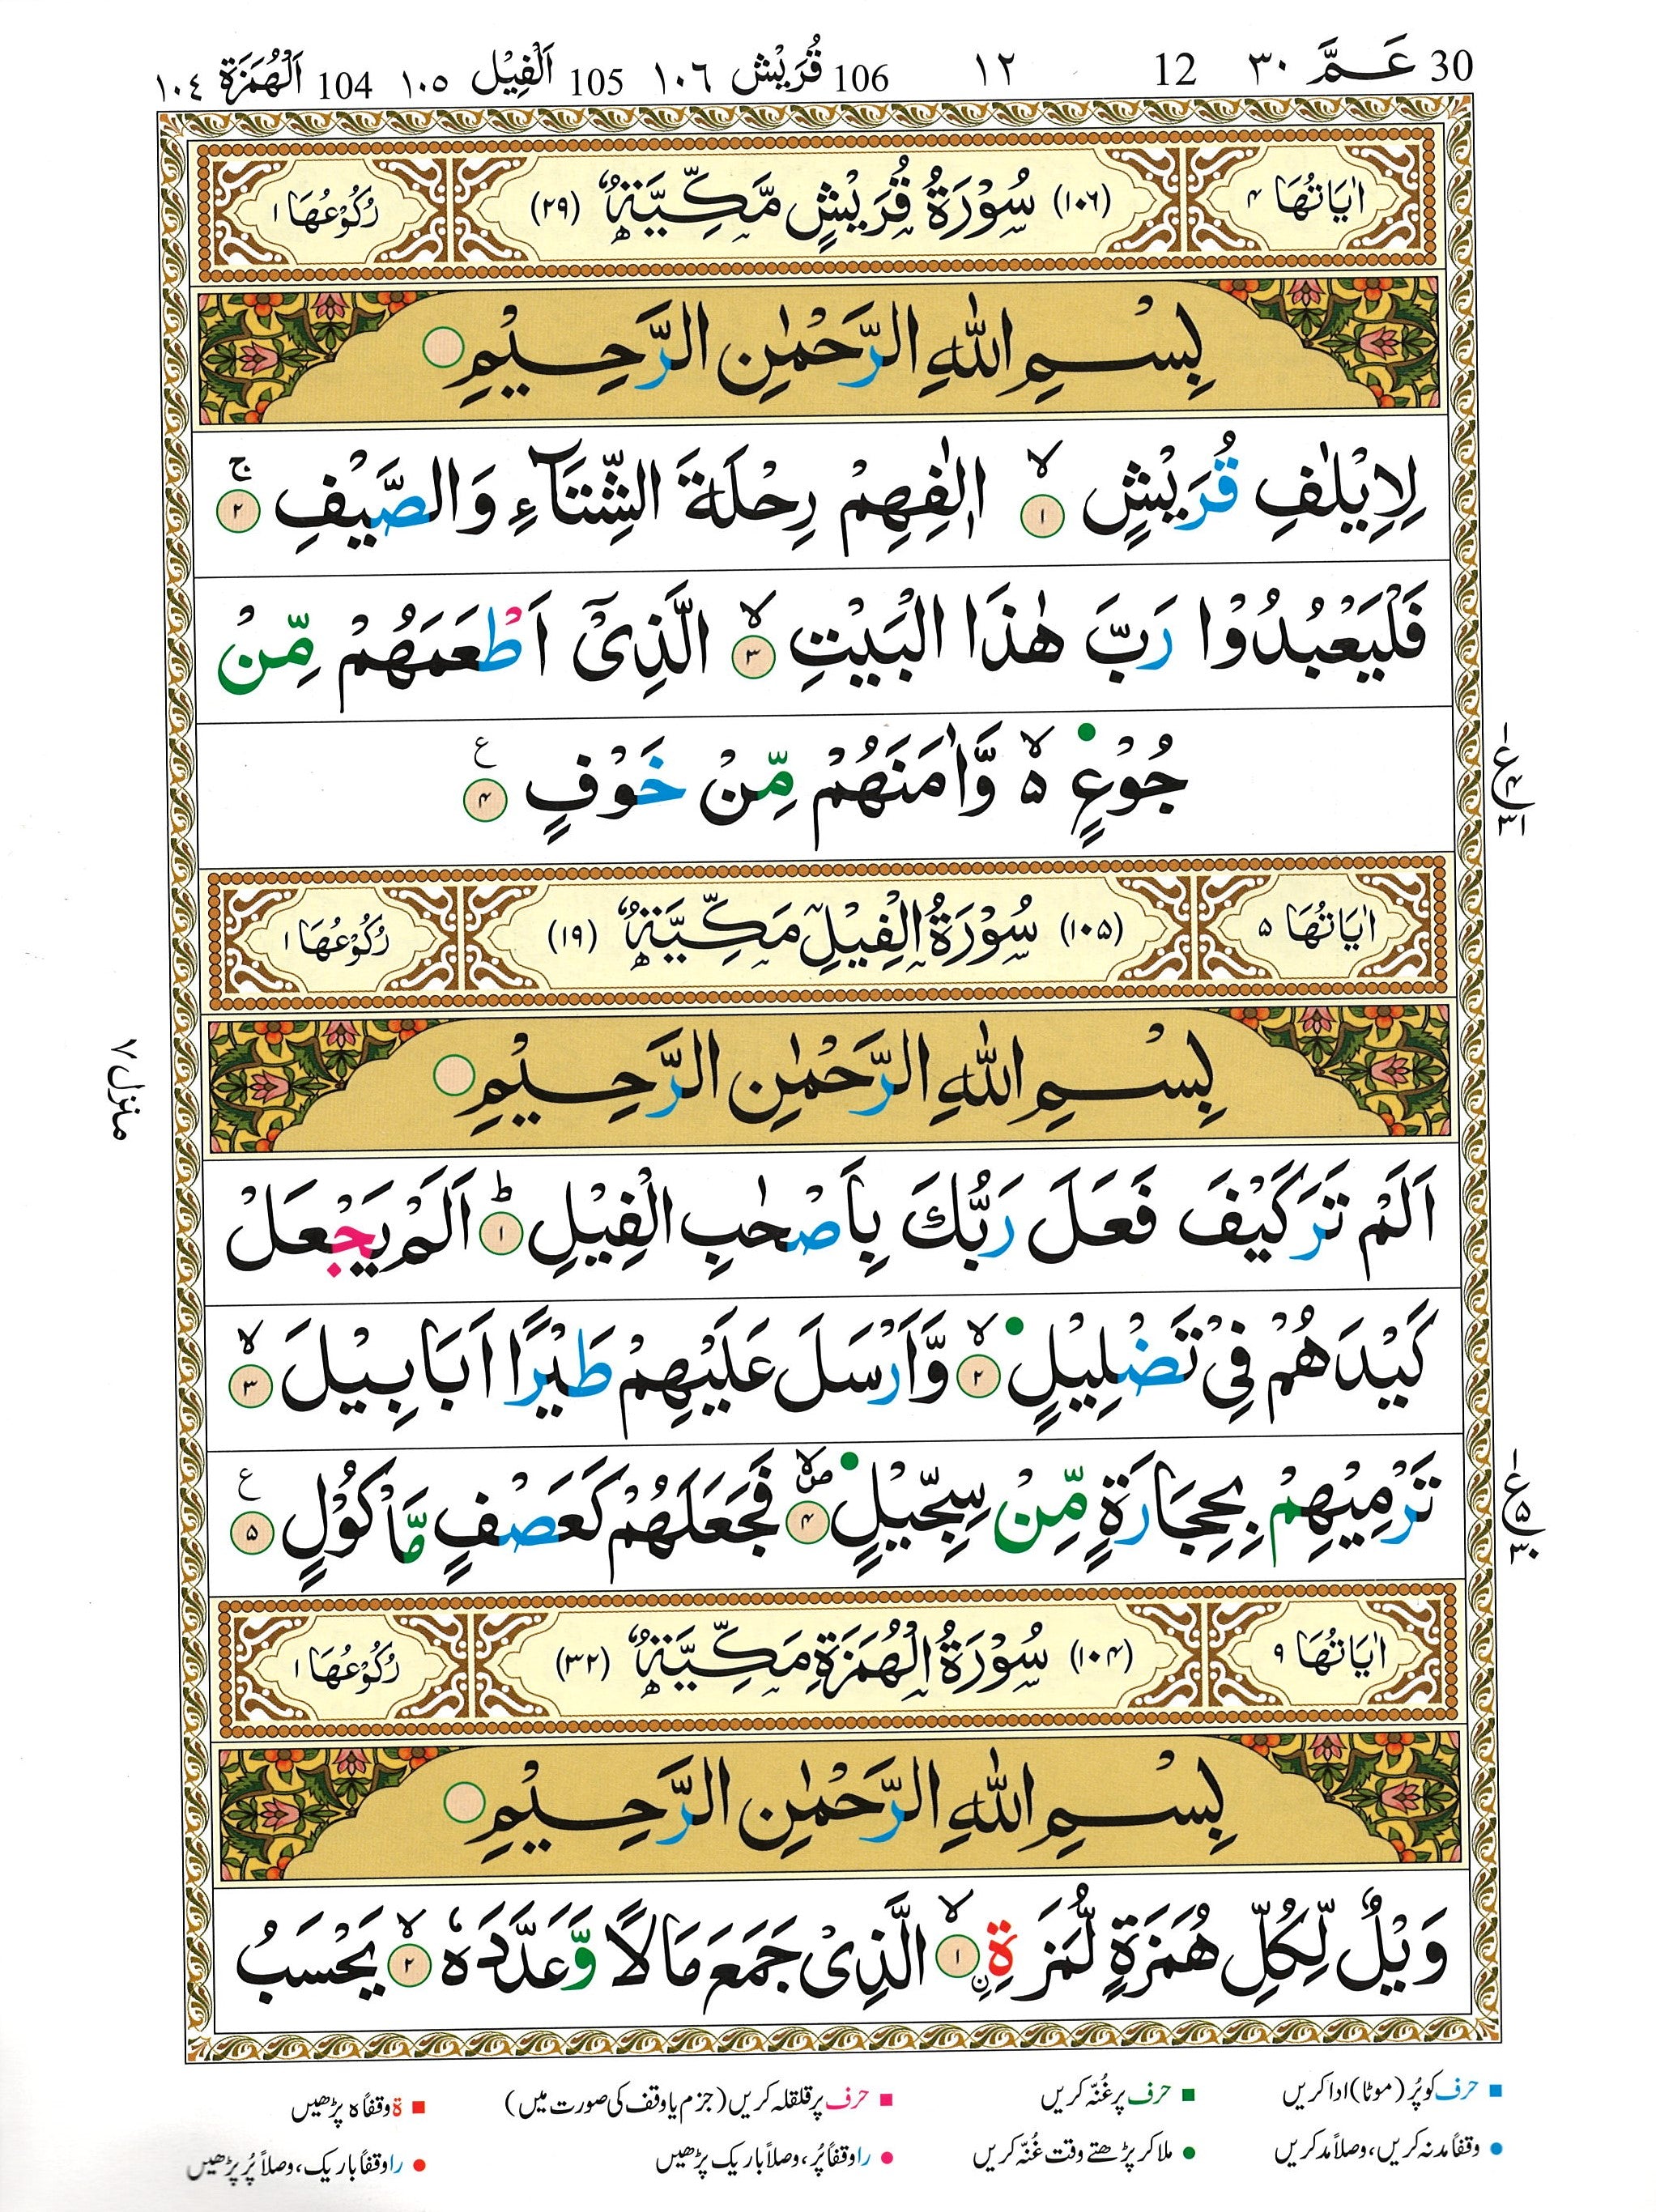 30 عَـمَّ ٣٠ 12 ١٢ 106 قُرَيْش ١٠٦ 105 اَلْفِيْل ١٠٥ 104 اَلْهُمَزَة ١٠٤
اٰيَاتُهَا ۴ (۱۰۶) سُوْرَةُ قُرَيْشٍ مَّكِّيَّةٌ (۲۹) رُكُوْعُهَا ۱
بِسْمِ اللّٰهِ الرَّحْمٰنِ الرَّحِيْمِ
لِاِيْلٰفِ قُرَيْشٍ ۙ ۱ اٖلٰفِهِمْ رِحْلَةَ الشِّتَآءِ وَالصَّيْفِ ۚ ۲
فَلْيَعْبُدُوْا رَبَّ هٰذَا الْبَيْتِ ۙ ۳ الَّذِىْٓ اَطْعَمَهُمْ مِّنْ
جُوْعٍ ۵ ۙ وَّاٰمَنَهُمْ مِّنْ خَوْفٍ ۴ ع
ع ۴ ۳۱
اٰيَاتُهَا ۵ (۱۰۵) سُوْرَةُ الْفِيْلِ مَكِّيَّةٌ (۱۹) رُكُوْعُهَا ۱
بِسْمِ اللّٰهِ الرَّحْمٰنِ الرَّحِيْمِ
منزل ۷
اَلَمْ تَرَ كَيْفَ فَعَلَ رَبُّكَ بِاَصْحٰبِ الْفِيْلِ ؕ ۱ اَلَمْ يَجْعَلْ
كَيْدَهُمْ فِىْ تَضْلِيْلٍ ۙ ۲ وَّاَرْسَلَ عَلَيْهِمْ طَيْرًا اَبَابِيْلَ ۙ ۳
تَرْمِيْهِمْ بِحِجَارَةٍ مِّنْ سِجِّيْلٍ ۙ ۴ فَجَعَلَهُمْ كَعَصْفٍ مَّاْكُوْلٍ ۵ ع
ع ۵ ۳۰
اٰيَاتُهَا ۹ (۱۰۴) سُوْرَةُ الْهُمَزَةِ مَكِّيَّةٌ (۳۲) رُكُوْعُهَا ۱
بِسْمِ اللّٰهِ الرَّحْمٰنِ الرَّحِيْمِ
وَيْلٌ لِّكُلِّ هُمَزَةٍ لُّمَزَةِ ۙ ۱ ۨ الَّذِىْ جَمَعَ مَالًا وَّعَدَّدَهٗ ۙ ۲ يَحْسَبُ
حرف کو پُر (موٹا) ادا کریں حرف پر غُنّہ کریں حرف پر قلقلہ کریں (جزم یا وقف کی صورت میں) ۃ وقفاً ہ پڑھیں
وقفاً مد نہ کریں، وصلاً مد کریں ملا کر پڑھتے وقت غُنّہ کریں را وقفاً پُر، وصلاً باریک پڑھیں را وقفاً باریک، وصلاً پُر پڑھیں